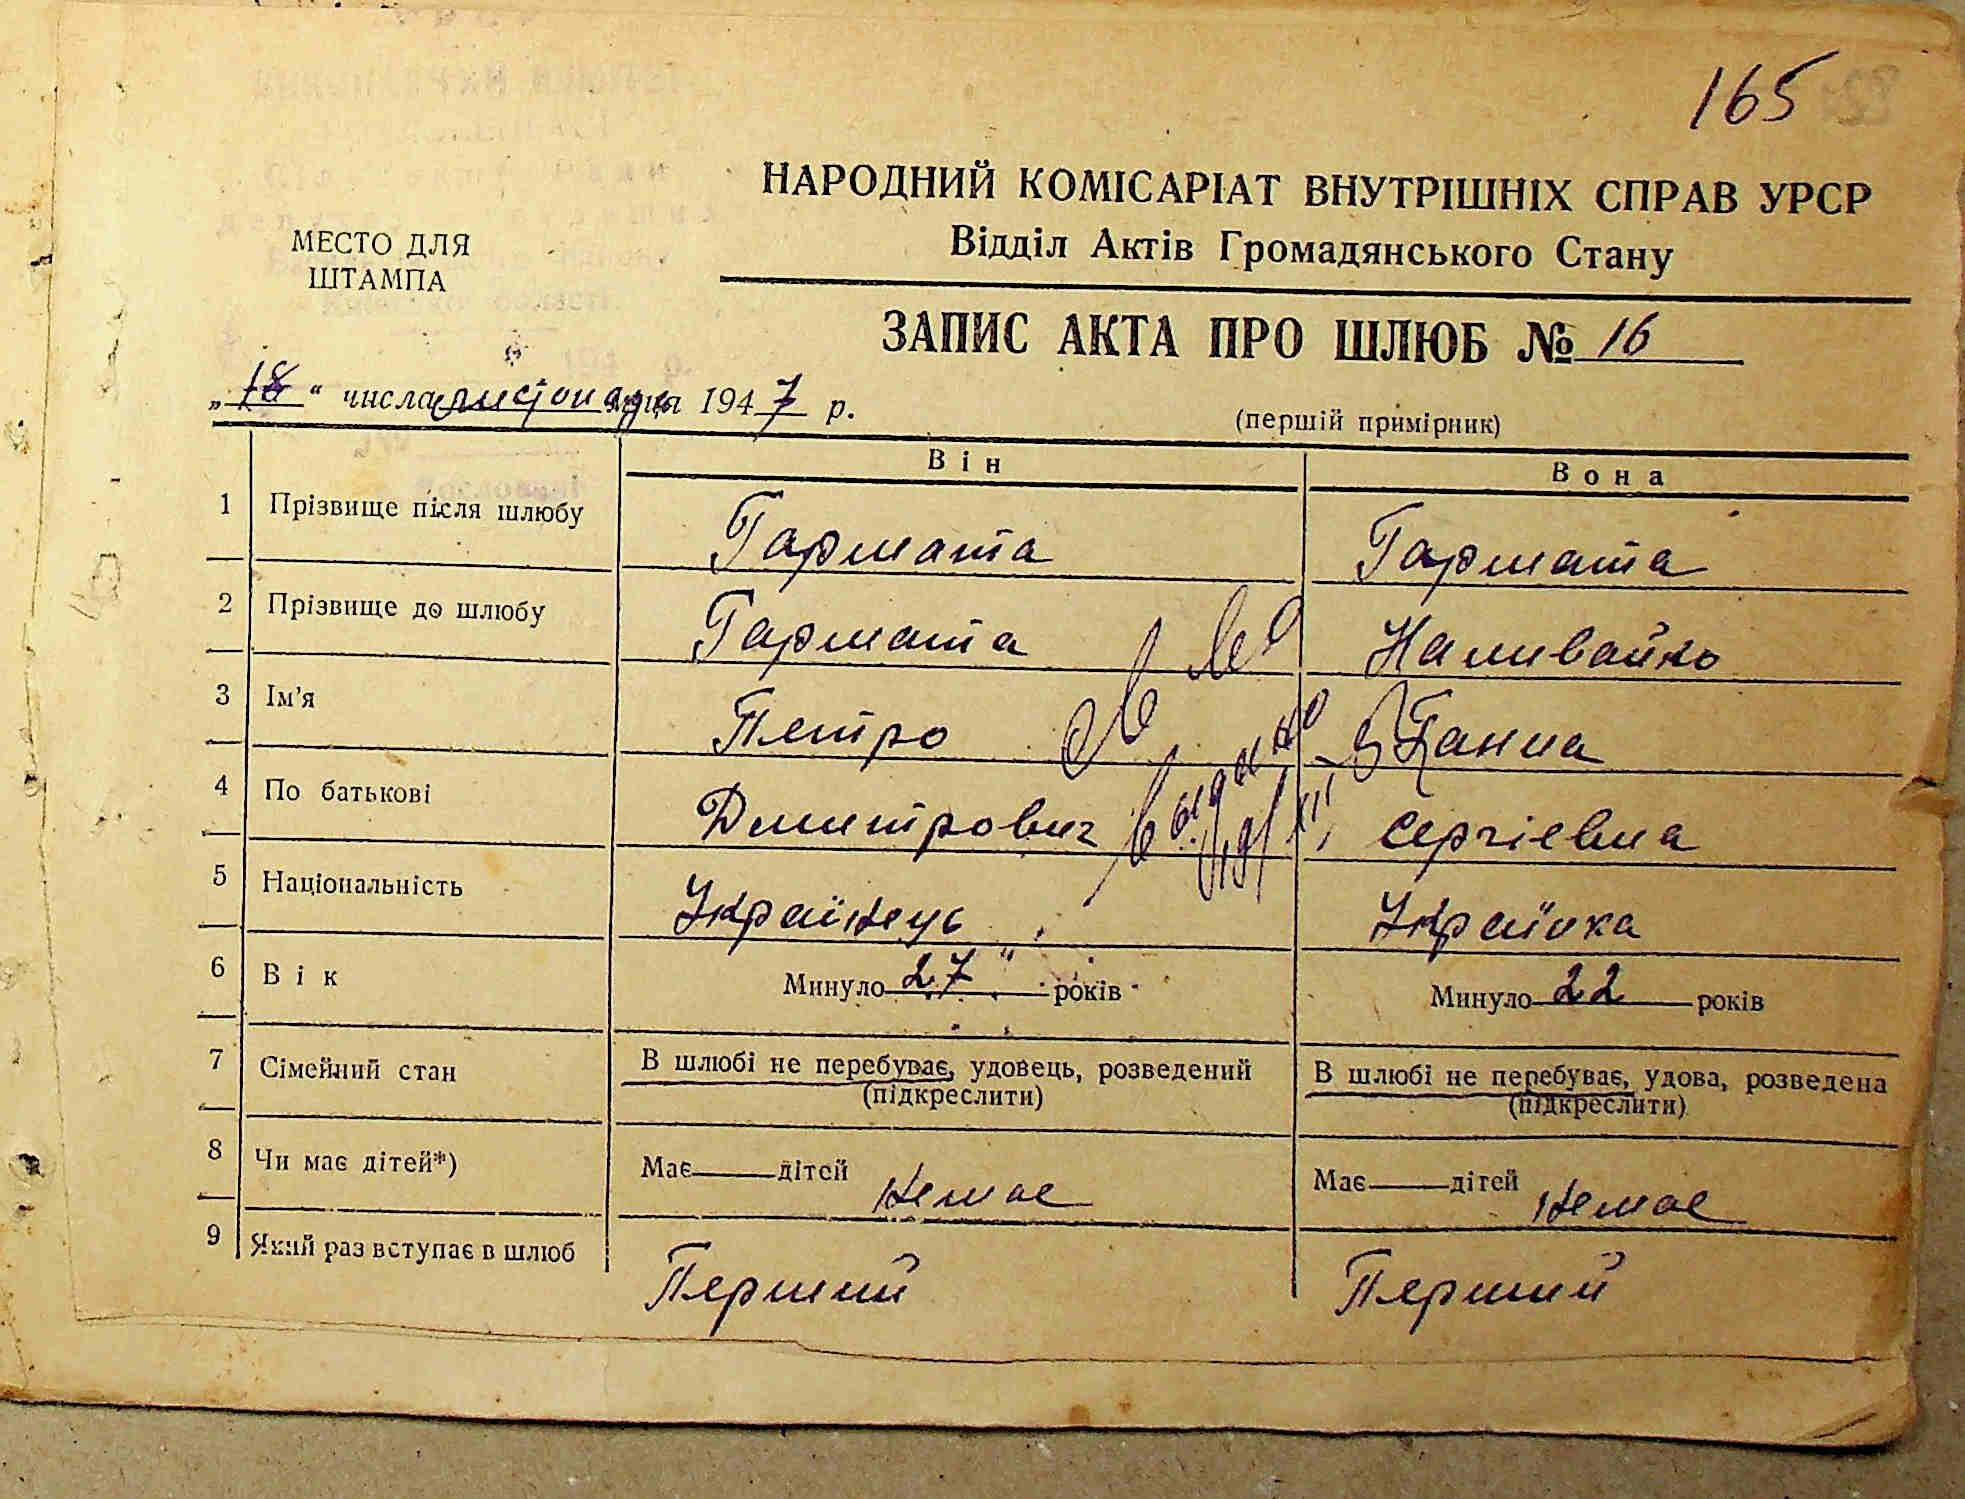 165
НАРОДНИЙ КОМІСАРІАТ ВНУТРІШНІХ СПРАВ УРСР
Відділ Актів Громадянського Стану
МЕСТО ДЛЯ
ШТАМПА
ЗАПИС АКТА ПРО ШЛЮБ № 16
„18“ числа листопада 1947 р.
(першій примірник)
Він Вона
1 Прізвище після шлюбу Гармата Гармата
2 Прізвище до шлюбу Гармата Наливайко
3 Ім'я Петро Ганна
4 По батькові Дмитрович Сергіевна
5 Національність Українець Українка
6 Вік Минуло 27 років Минуло 22 років
7 Сімейний стан В шлюбі не перебуває, удовець, розведений В шлюбі не перебуває, удова, розведена
(підкреслити) (підкреслити)
8 Чи має дітей*) Має дітей немае Має дітей немае
9 Який раз вступає в шлюб Перший Перший